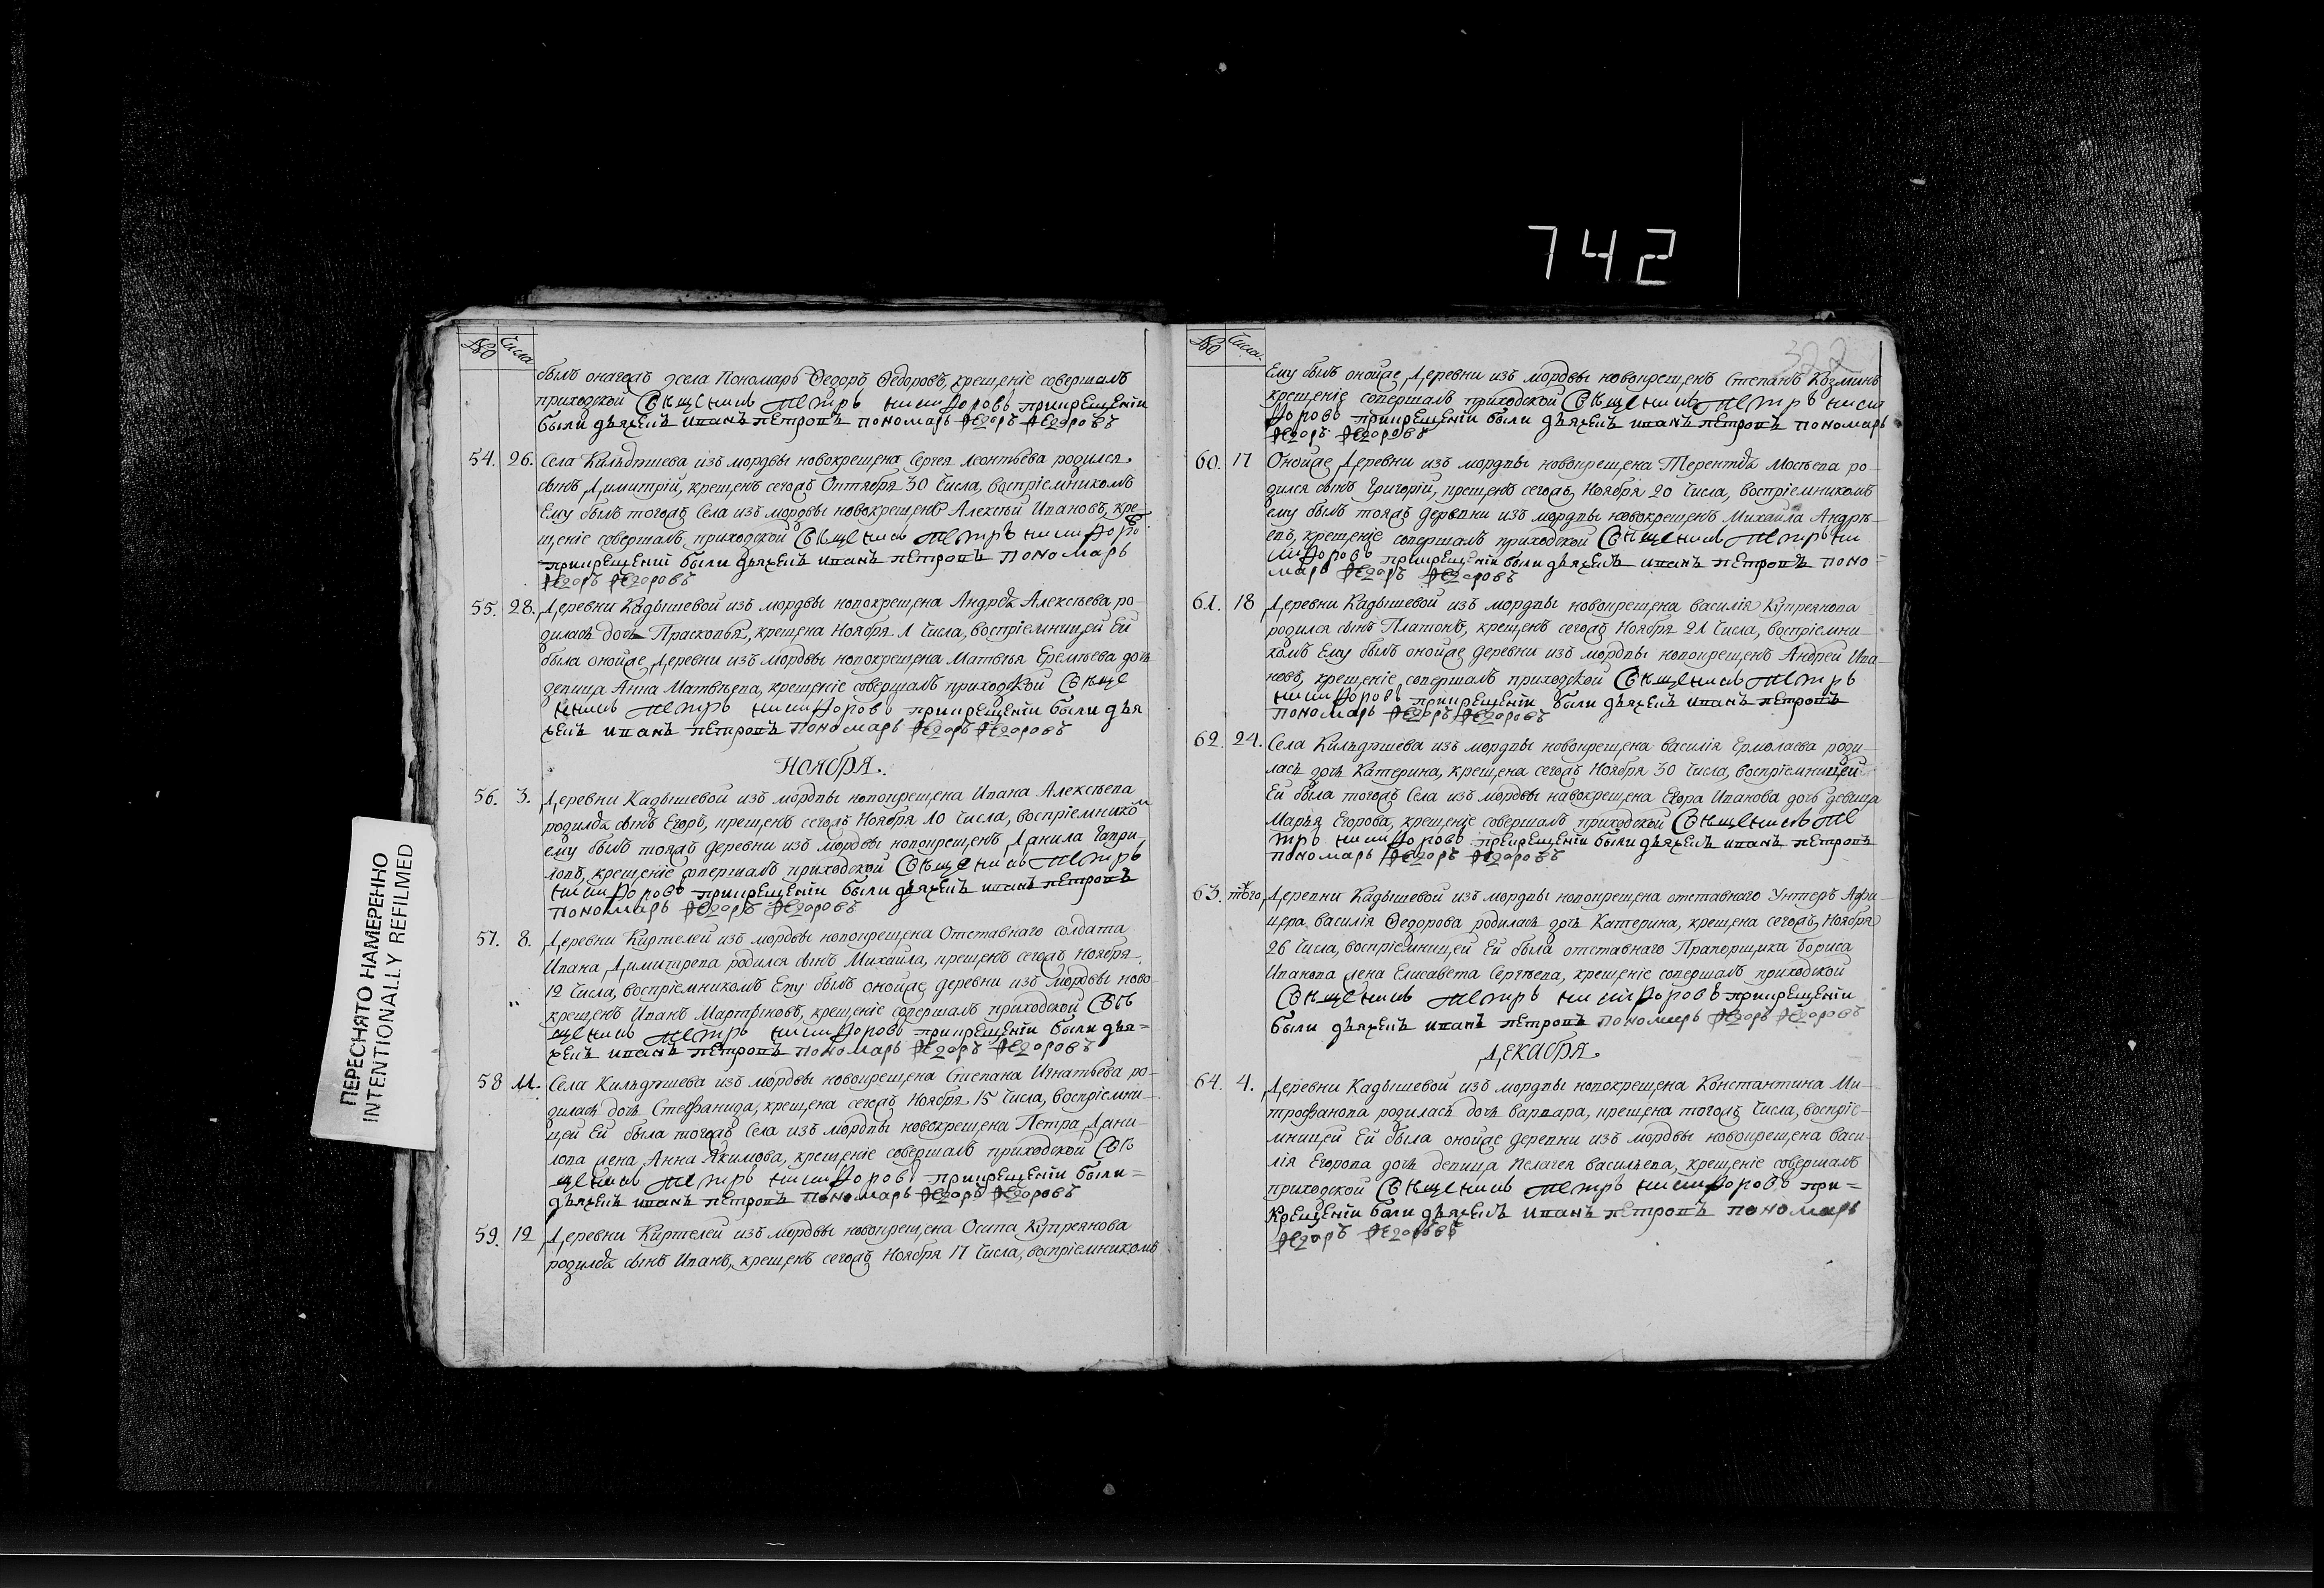 742
322
ПЕРЕСНЯТО НАМЕРЕННО
INTENTIONALLY REFILMED
№ Числа
былъ онагожъ села Пономарь Ѳедоръ Ѳедоровъ, крещеніе совершалъ
приходской Священникъ Петръ Никифоровъ прикрещеніи
были дьячекъ иванъ петровъ пономарь Федоръ Федоровъ
54. 26. Села Кильдюшева изъ мордвы новокрещена Сергея Леонтьева родился
сынъ Димитрій, крещенъ сегожъ Октября 30 числа, воспріемникомъ
Ему былъ тогожъ Села изъ мордвы новокрещенъ Алексѣй Ивановъ, кре-
щеніе совершалъ приходской Священникъ Петръ Никифоровъ
прикрещеніи были дьячекъ иванъ петровъ пономарь
Федоръ Федоровъ
55. 28. Деревни Кадышевой изъ мордвы новокрещена Андрея Алексѣева ро-
дилась дочь Прасковья, крещена Ноября 1 числа, воспріемницей Ей
была онойже Деревни изъ мордвы новокрещена Матвѣя Еремѣева дочь
девица Анна Матвѣева, крещеніе совершалъ приходской Свяще
нникъ Петръ Никифоровъ прикрещеніи были дья
чекъ иванъ петровъ пономарь Федоръ Федоровъ
Ноября.
56. 3. Деревни Кадышевой изъ мордвы новокрещена Ивана Алексѣева
родился сынъ Егоръ, крещенъ сегожъ Ноября 10 числа, воспріемникомъ
ему былъ тояжъ деревни изъ мордвы новокрещенъ Данила Гаври-
ловъ, крещеніе совершалъ приходской Священникъ Петръ
Никифоровъ прикрещеніи были дьячекъ иванъ петровъ
пономарь Федоръ Федоровъ
57. 8. Деревни Киртелей изъ мордвы новокрещена Отставнаго солдата
Ивана Димитрева родился сынъ Михайла, крещенъ сегожъ Ноября
12 числа, воспріемникомъ Ему былъ онойже деревни изъ мордвы ново-
крещенъ Иванъ Мартыновъ, крещеніе совершалъ приходской Свя
щенникъ Петръ Никифоровъ прикрещеніи были дья=
чекъ иванъ петровъ пономарь Федоръ Федоровъ
58 11. Села Кильдюшева изъ мордвы новокрещена Степана Игнатьева ро-
дилась дочь Стефанида, крещена сегожъ Ноября 15 числа, воспріемни-
цей Ей была тогожъ Села изъ мордвы новокрещена Петра Дани-
лова жена Анна Якимова, крещеніе совершалъ приходской Свя
щенникъ Петръ Никифоровъ прикрещеніи были=
дьячекъ иванъ петровъ пономарь Федоръ Федоровъ
59. 12 Деревни Киртелей изъ мордвы новокрещена Осипа Купреянова
родился сынъ Иванъ, крещенъ сегожъ Ноября 17 числа, воспріемникомъ
№ Числа
Ему былъ онойже Деревни изъ мордвы новокрещенъ Степанъ Козминъ
крещеніе совершалъ приходской Священникъ Петръ Ники
форовъ прикрещеніи были дьячекъ иванъ петровъ пономарь
Федоръ Федоровъ
60. 17 Онойже Деревни изъ мордвы новокрещена Терентья Мосѣева ро-
дился сынъ Григорій, крещенъ сегожъ Ноября 20 числа, воспріемникомъ
ему былъ тояжъ деревни изъ мордвы новокрещенъ Михайла Андрѣ-
евъ, крещеніе совершалъ приходской Священникъ Петръ Ни
кифоровъ прикрещеніи были дьячекъ иванъ петровъ поно=
марь Федоръ Федоровъ
61. 18 Деревни Кадышевой изъ мордвы новокрещена Василія Купреянова
родился сынъ Платонъ, крещенъ сегожъ Ноября 21 числа, воспріемни-
комъ Ему былъ онойже деревни изъ мордвы новокрещенъ Андрей Ива-
новъ, крещеніе совершалъ приходской Священникъ Петръ
Никифоровъ прикрещеніи были дьячекъ иванъ петровъ
пономарь Федоръ Федоровъ
62. 24. Села Кильдюшева изъ мордвы новокрещена Василія Ермолаева роди-
лась дочь Катерина, крещена сегожъ Ноября 30 числа, воспріемницей
Ей была тогожъ Села изъ мордвы навокрещена Егора Иванова дочь девица
Марья Егорова, крещеніе совершалъ приходской Священникъ Пе
тръ Никифоровъ прикрещеніи были дьячекъ иванъ петровъ
пономарь Федоръ Федоровъ
63. тогож Деревни Кадышевой изъ мордвы новокрещена отставнаго Унтеръ Афи-
цера Василія Ѳедорова родилась дочь Катерина, крещена сегожъ Ноября
26 числа, воспріемницей Ей была отставнаго Прапорщика Бориса
Иванова жена Елисавета Сергѣева, крещеніе совершалъ приходской
Священникъ Петръ Никифоровъ прикрещеніи
были дьячекъ иванъ петровъ пономарь Федоръ Федоровъ
Декабря
64. 4. Деревни Кадышевой изъ мордвы новокрещена Константина Ми-
трофанова родилась дочь Варвара, крещена тогожъ числа, воспріе-
мницей Ей была онойже деревни изъ мордвы новокрещена Васи-
лія Егорова дочь девица Пелагея Васильева, крещеніе совершалъ
приходской Священникъ Петръ Никифоровъ при=
крещеніи были дьячекъ иванъ петровъ пономарь
Федоръ Федоровъ